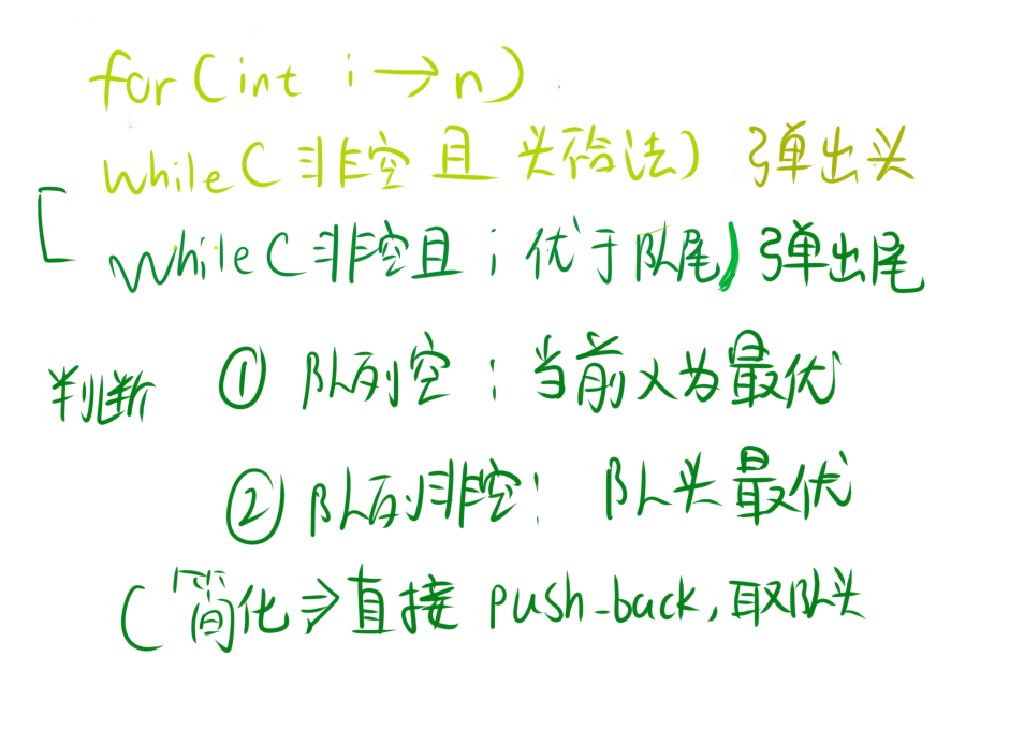 for(int i→n)
while(非空且 头不合法) 弹出头
while(非空且 i 优于队尾) 弹出尾
判断 ① 队列空：当前又为最优
② 队列非空： 队头最优
(简化⇒直接 push-back,取队头